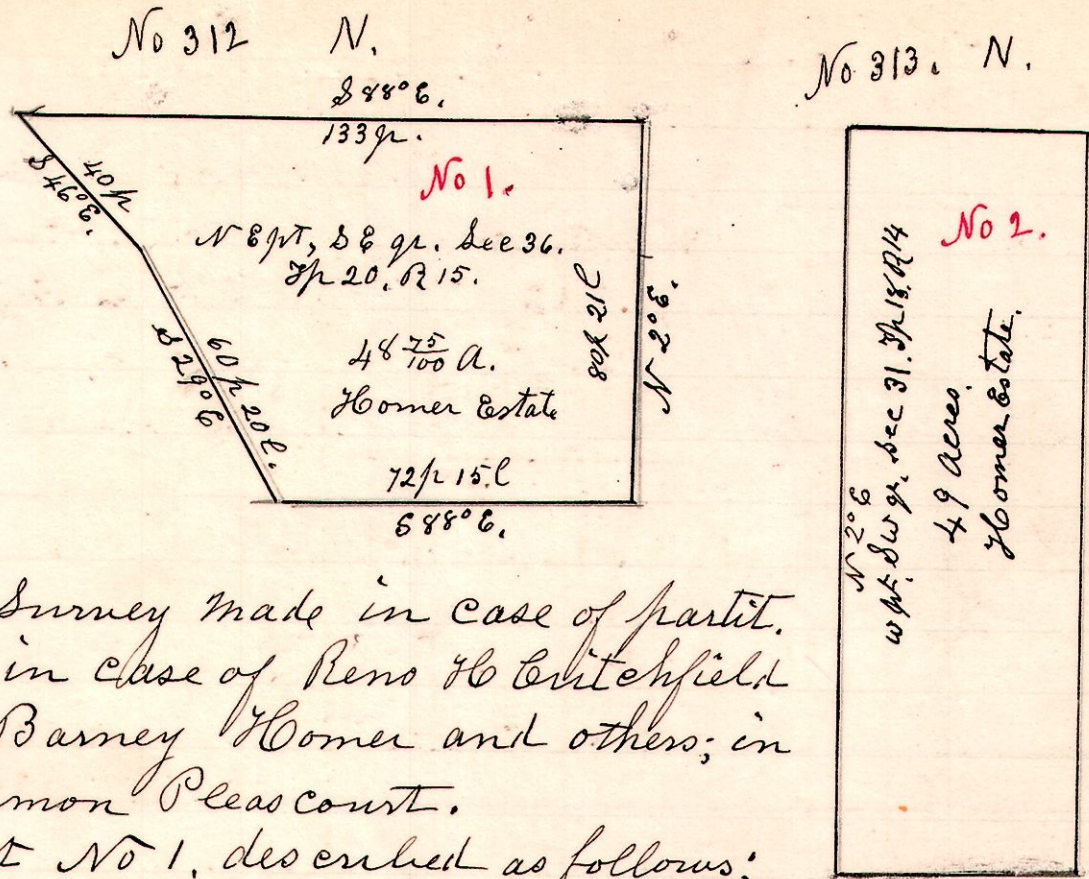 No 312 N.
S 88° E.
133 p.
No 1.
S 49° E.
40 p
N E pt, S E qr. Sec 36.
Tp 20, R 15.
48 75/100 A.
Homer Estate
80p 21 l
N 2° E.
S 29° E
60 p 20 l.
72 p 15. l
S 88° E.
No 313. N.
No 2.
N 2° E
W pt. SW qr. Sec 31. Tp 18, R 14
49 acres.
Homer Estate.
Survey made in case of partit.
in case of Reno H Critchfield
Barney Homer and others; in
mon Pleas court.
t No 1, described as follows: